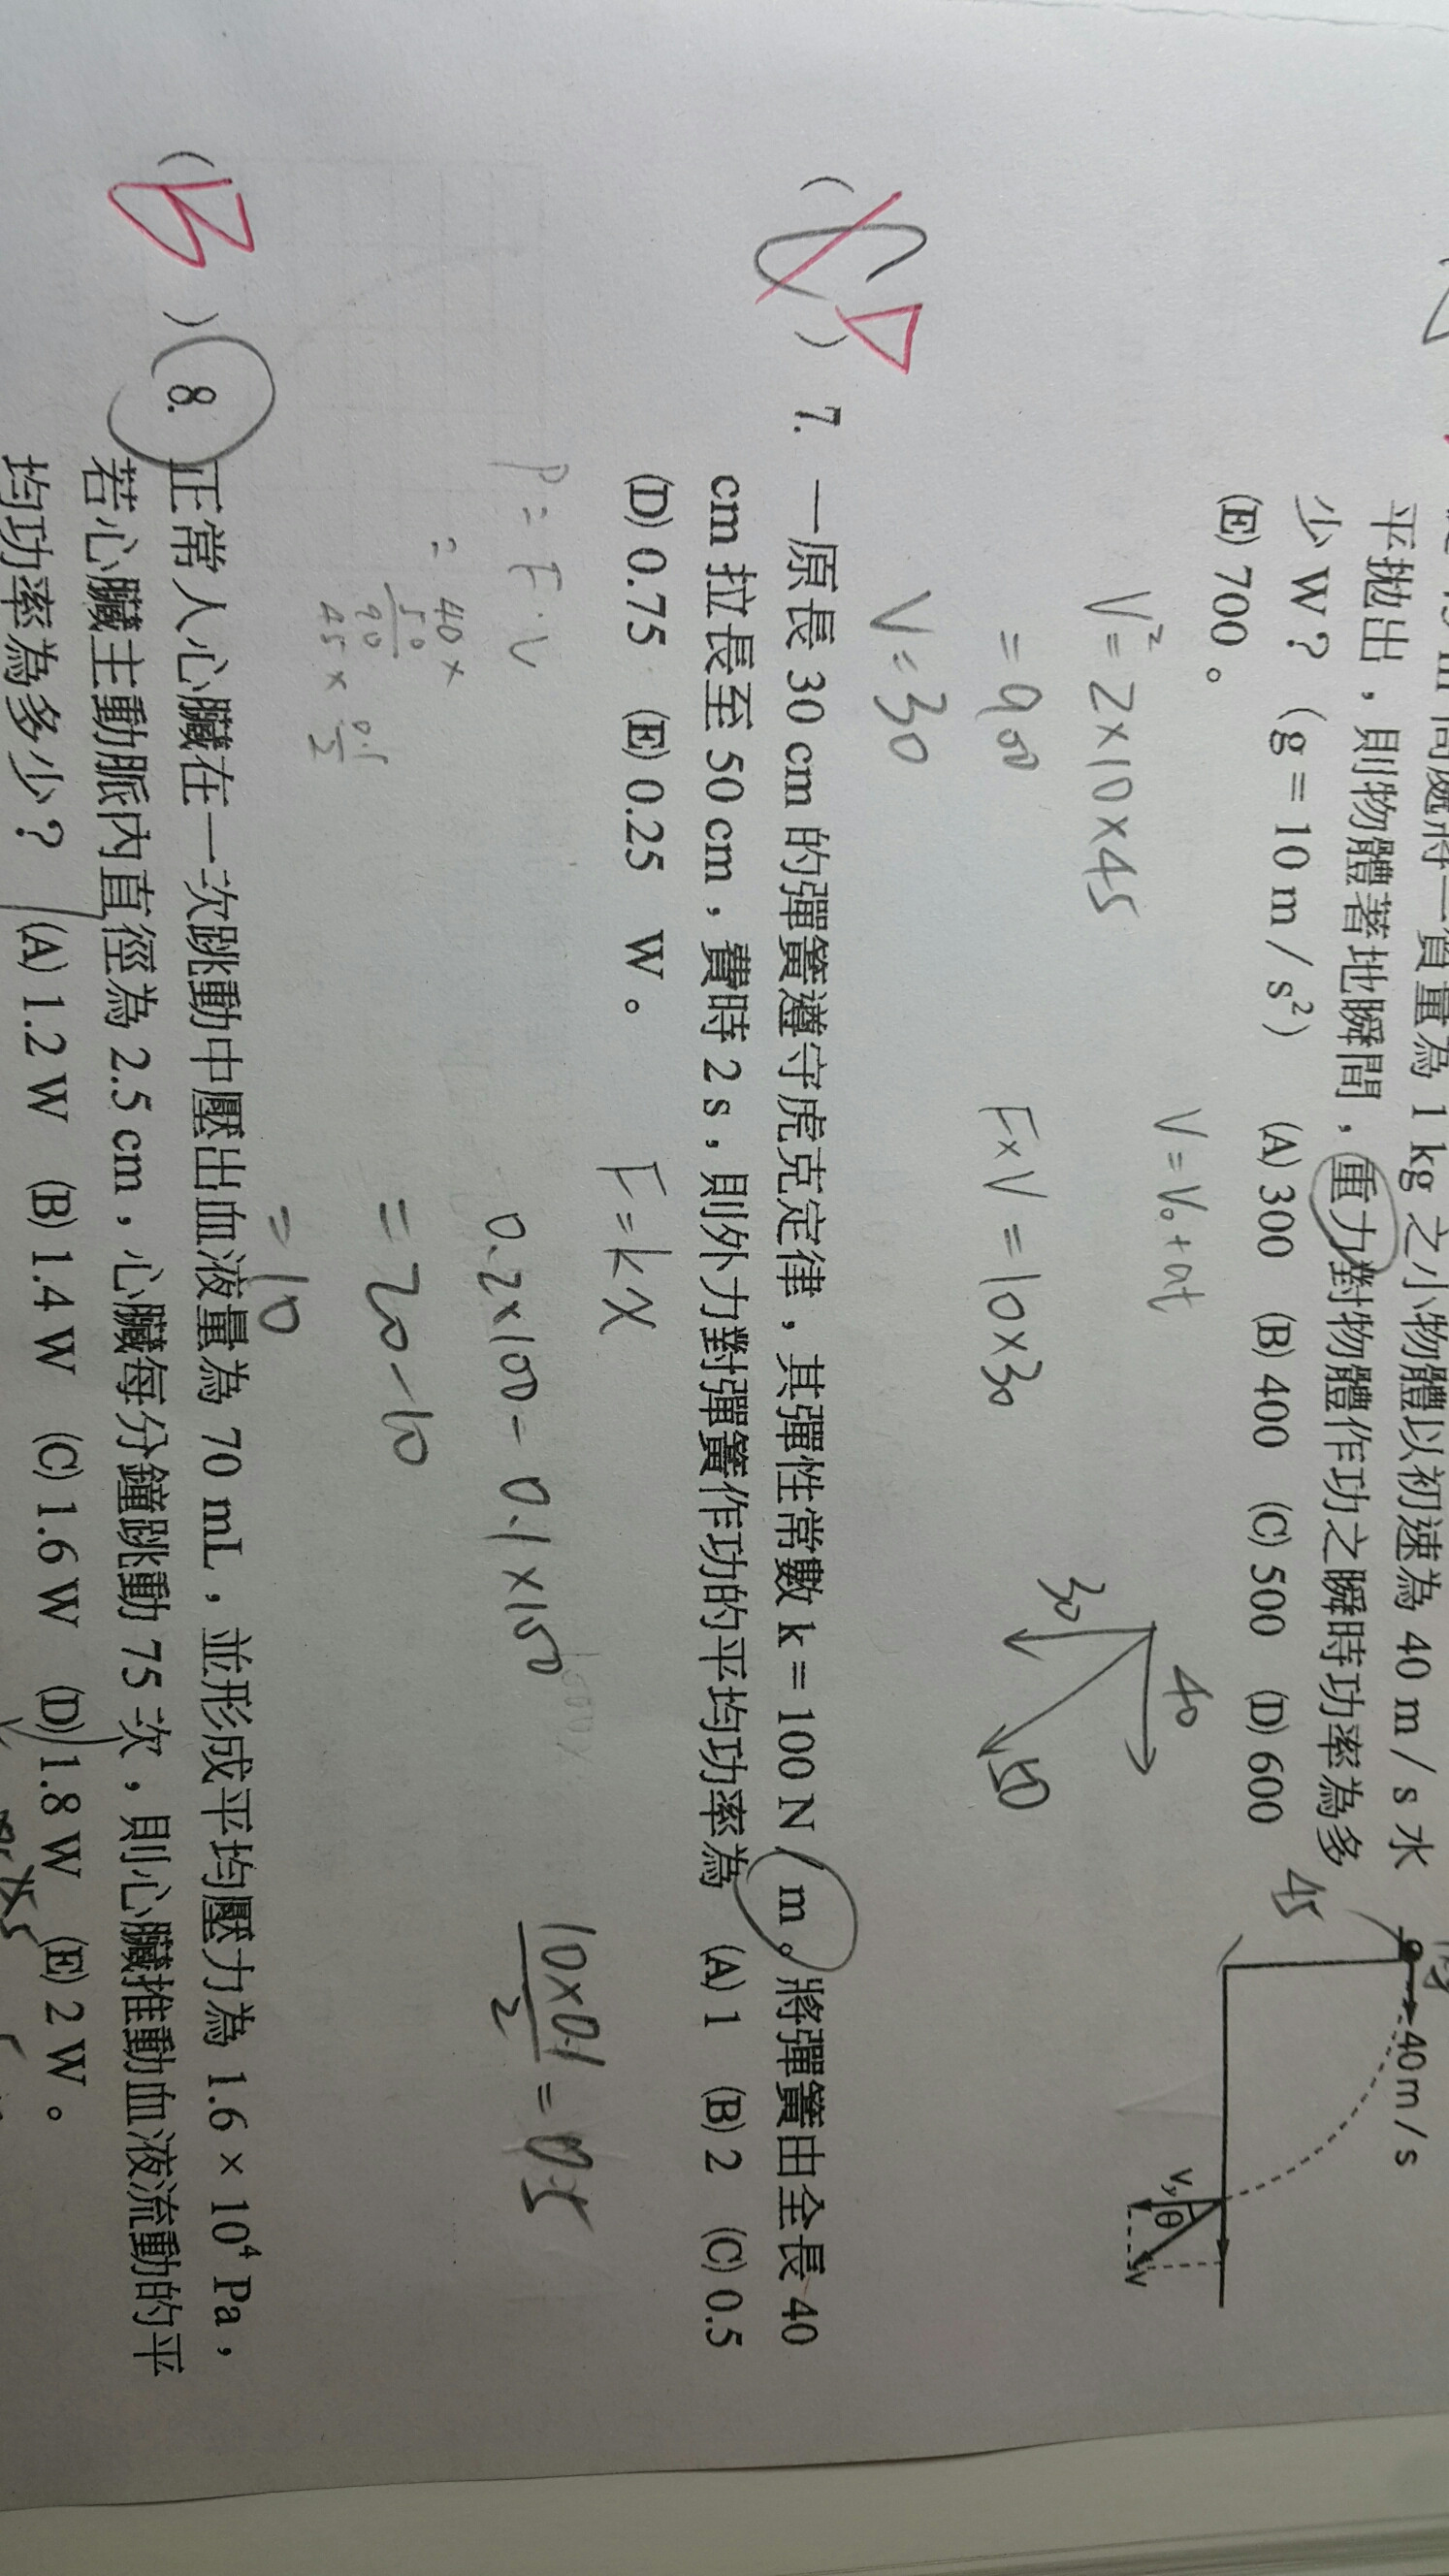 平拋出，則物體著地瞬間，重力對物體作功之瞬時功率為多
少 W？（g = 10 m / s²） (A) 300 (B) 400 (C) 500 (D) 600
(E) 700。
40 m / s
v
θ
45
V² = 2×10×45
= 900
V = 30
V = V₀ + at
F×V = 10×30
40
30
50
(C) D 7. 一原長 30 cm 的彈簧遵守虎克定律，其彈性常數 k = 100 N / m。將彈簧由全長 40
cm 拉長至 50 cm，費時 2 s，則外力對彈簧作功的平均功率為 (A) 1 (B) 2 (C) 0.5
(D) 0.75 (E) 0.25 W。
F = kx
0.2×100 - 0.1×100
= 20-10
= 10
10×0.1
2
= 0.5
P = F·V
= 40×
50
90
45× 0.1
2
(B) 8. 正常人心臟在一次跳動中壓出血液量為 70 mL，並形成平均壓力為 1.6 × 10⁴ Pa，
若心臟主動脈內直徑為 2.5 cm，心臟每分鐘跳動 75 次，則心臟推動血液流動的平
均功率為多少？ (A) 1.2 W (B) 1.4 W (C) 1.6 W (D) 1.8 W (E) 2 W。